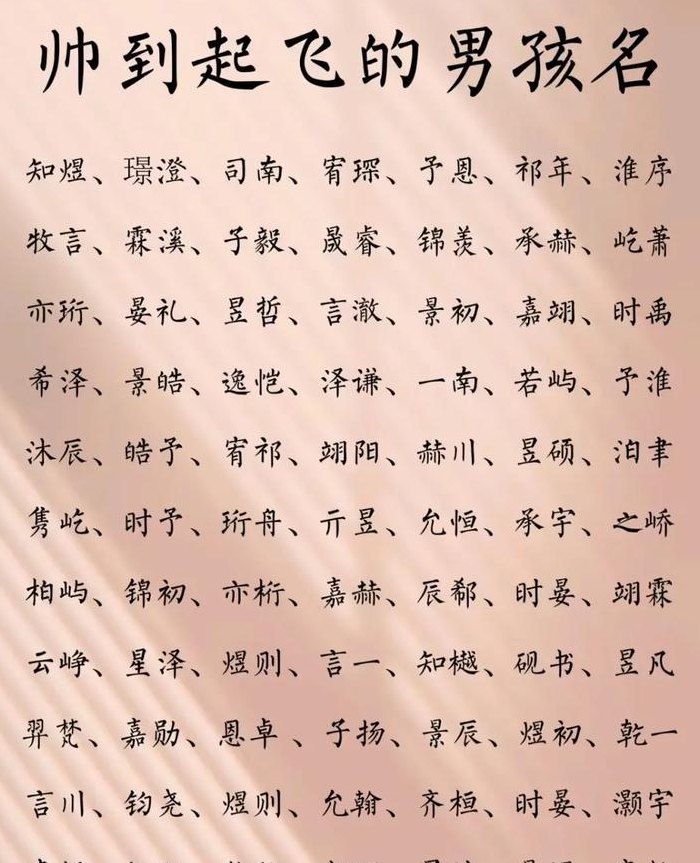 帅到起飞的男孩名
知煜、璟澄、司南、宥琛、予恩、祁年、淮序
牧言、霖溪、子毅、晟睿、锦羡、承赫、屹萧
亦珩、晏礼、昱哲、言澈、景初、嘉翊、时禹
希泽、景皓、逸恺、泽谦、一南、若屿、予淮
沐辰、皓予、宥祁、翊阳、赫川、昱硕、洎聿
隽屹、时予、珩舟、亓昱、允恒、承宇、之峤
柏屿、锦初、亦桁、嘉赫、辰郗、时晏、翊霖
云峥、星泽、煜则、言一、知樾、砚书、昱凡
羿梵、嘉勋、恩卓、子扬、景辰、煜初、乾一
言川、钧尧、煜则、允翰、齐桓、时晏、灏宇